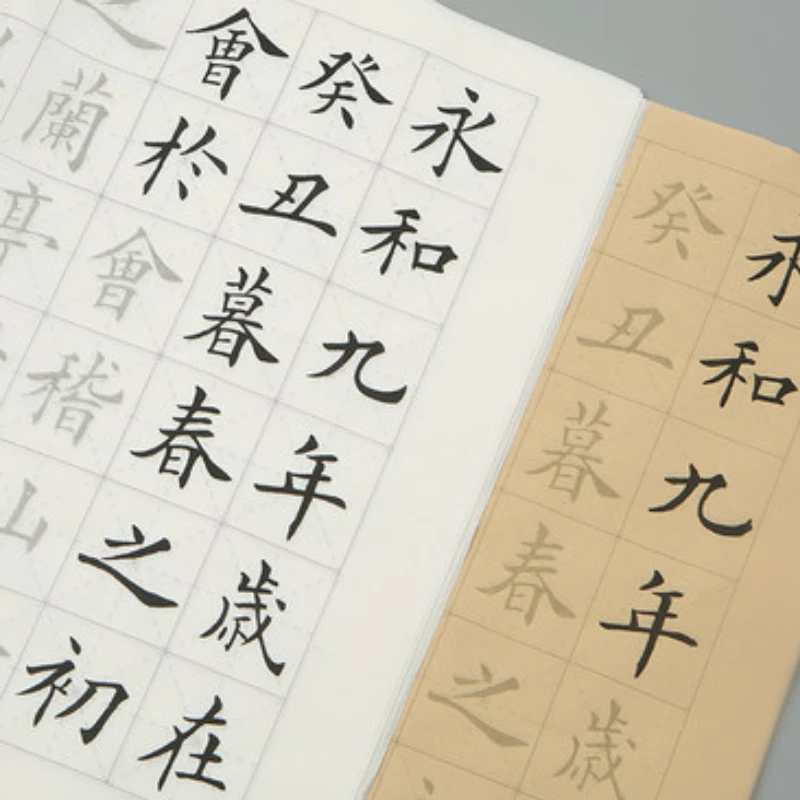 永和九年歳
癸丑暮春之
永和九年歳在
癸丑暮春之初
會於會稽山
之蘭亭